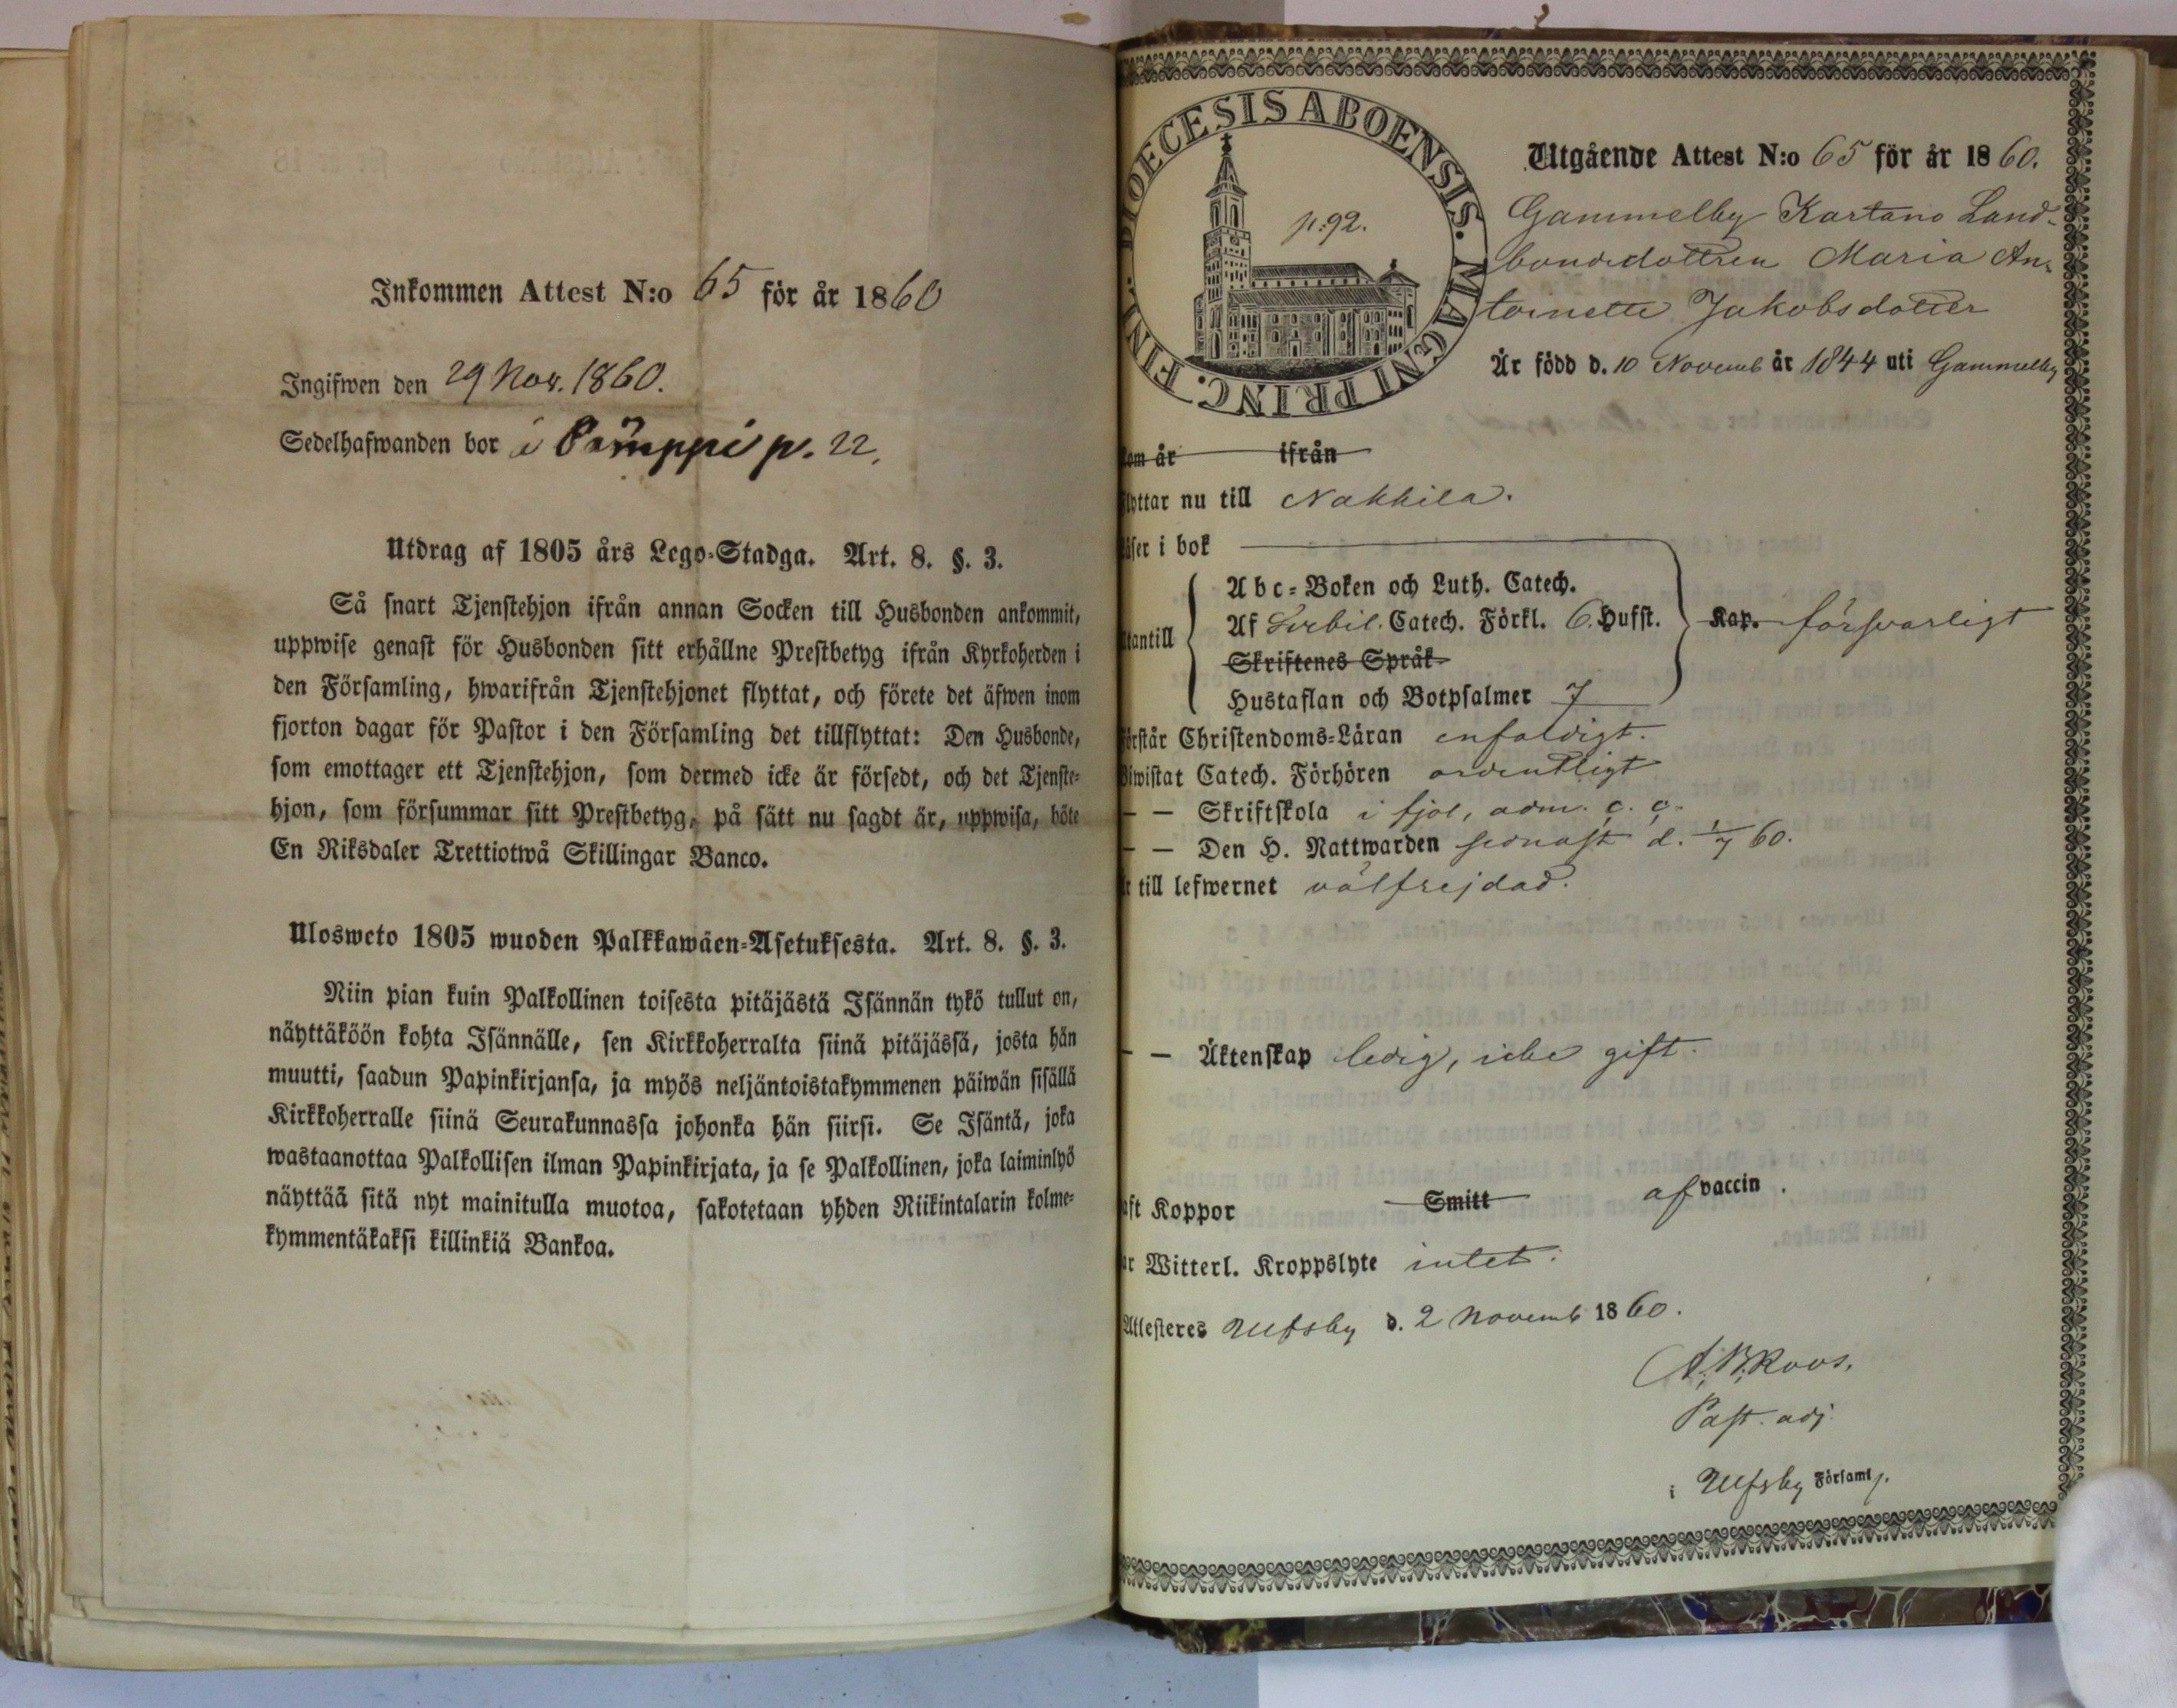 Inkommen Attest N:o 65 för år 1860
Ingifwen den 29 Nov. 1860.
Sedelhafwanden bor i p. 22.
Utdrag af 1805 års Lego-Stadga. Art. 8. §. 3.
Så snart Tjenstehjon ifrån annan Socken till Husbonden ankommit,
uppwise genast för Husbonden sitt erhållne Prestbetyg ifrån Kyrkoherden i
den Församling, hwarifrån Tjenstehjonet flyttat, och förete det äfwen inom
fjorton dagar för Pastor i den Församling det tillflyttat: Den Husbonde,
som emottager ett Tjenstehjon, som dermed icke är försedt, och det Tjenste-
hjon, som försummar sitt Prestbetyg, på sätt nu sagdt är, uppwisa, böte
En Riksdaler Trettiotwå Skillingar Banco.
Ulosweto 1805 wuoden Palkkawäen-Asetuksesta. Art. 8. §. 3.
Niin pian kuin Palkollinen toisesta pitäjästä Isännän tykö tullut on,
näyttäköön kohta Isännälle, sen Kirkkoherralta siinä pitäjässä, josta hän
muutti, saadun Papinkirjansa, ja myös neljäntoistakymmenen päiwän sisällä
Kirkkoherralle siinä Seurakunnassa johonka hän siirsi. Se Isäntä, joka
wastaanottaa Palkollisen ilman Papinkirjata, ja se Palkollinen, joka laiminlyö
näyttää sitä nyt mainitulla muotoa, sakotetaan yhden Riikintalarin kolme-
kymmentäkaksi killinkiä Bankoa.
DIOECESIS ABOENSIS. MAGNI PRINC. FINL.
p. 92.
Utgående Attest N:o 65 för år 1860.
Gammelby Kartano Land-
bondedottren Maria An-
toinette Jakobsdotter
Är född d. 10 Novemb år 1844 uti Gammelby
kom år ifrån
flyttar nu till Nakkila.
läser i bok
Utantill
Abc-Boken och Luth. Catech.
Af Svebil. Catech. Förkl. 6. Hufst.
Skriftenes Språk
Hustaflan och Botpsalmer 7
Kap. försvarligt
förstår Christendoms-Läran enfaldigt.
Biwistat Catech. Förhören ordentligt
— — Skriftskola i fjol, adm. c. c.
— — Den H. Nattwarden sednast d. 1/7 60.
är till lefwernet välfrejdad.
— — Äktenskap ledig, icke gift.
haft Koppor Smitt af vaccin.
har Witterl. Kroppslyte intet.
Attesteres Ulfsby d. 2 Novemb 1860.
A. B. Roos.
Past. adj.
i Ulfsby Församl.